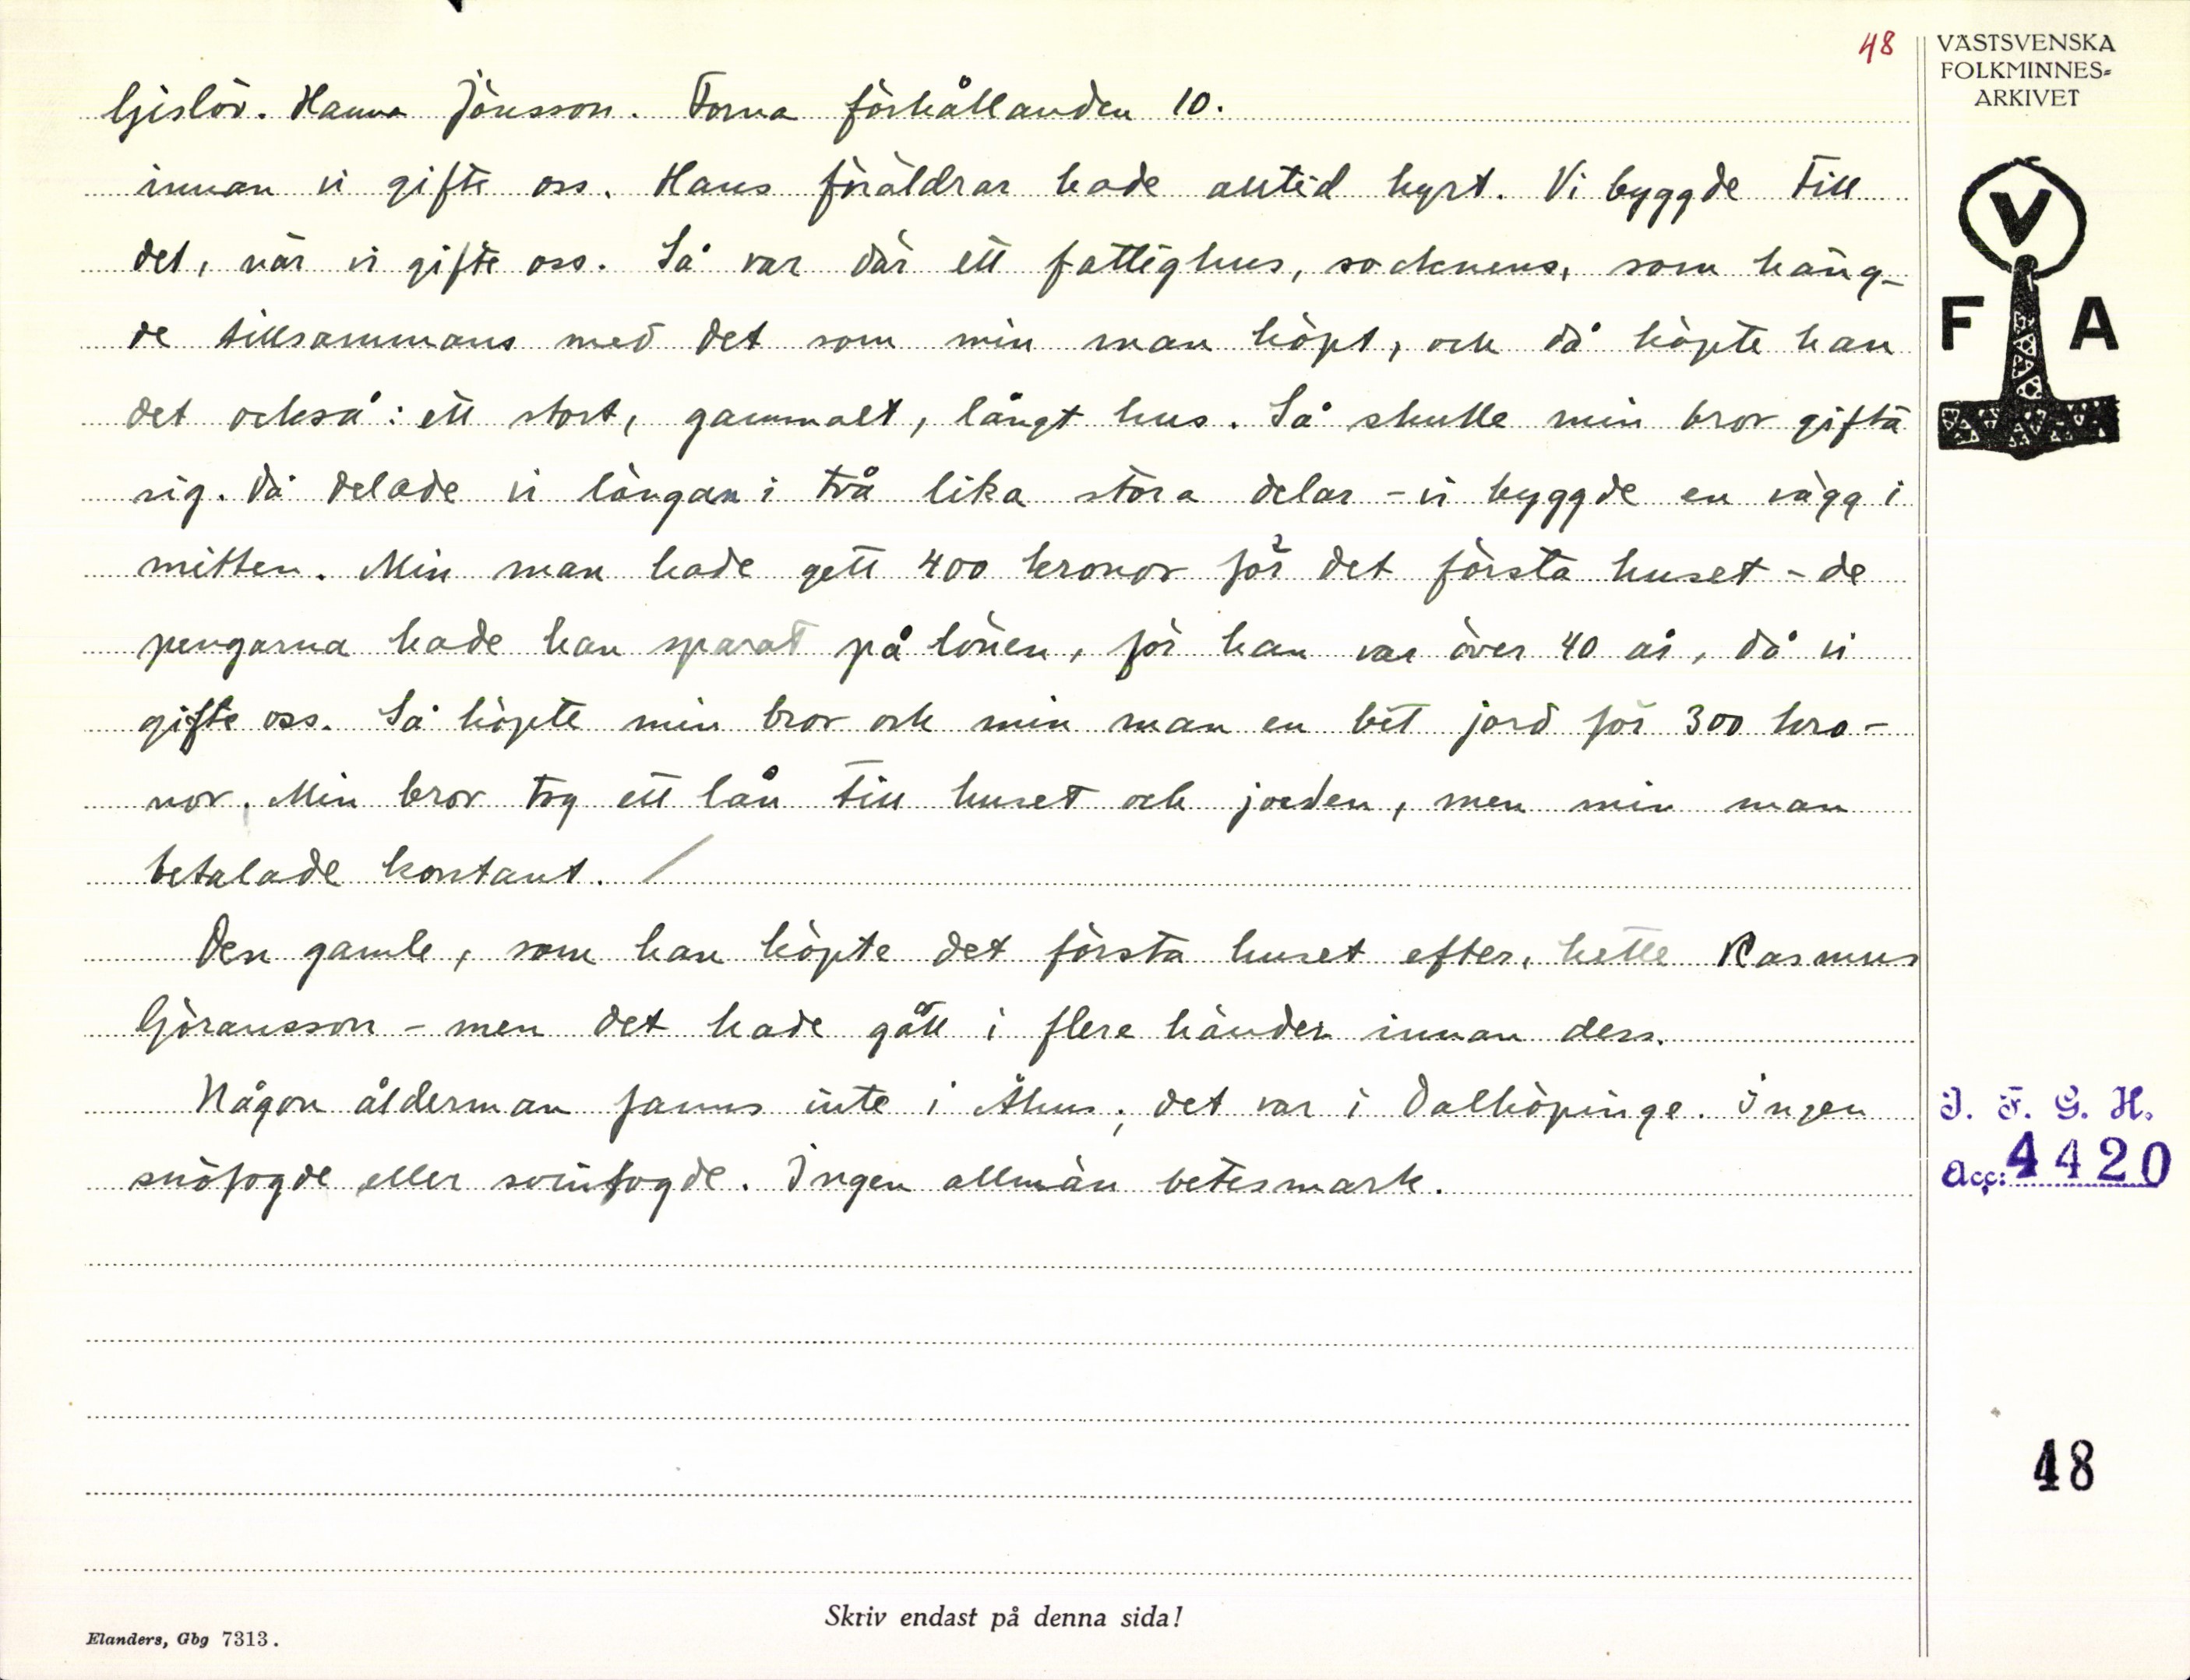 48
VÄSTSVENSKA
FOLKMINNES-
ARKIVET
Gislöv. Hanna Jönsson. Forna förhållanden 10.
innan vi gifte oss. Hans föräldrar hade alltid hyrt. Vi byggde till
det, när vi gifte oss. Så var där ett fattighus, socknens, som häng-
de tillsammans med det som min man köpt, och då köpte han
det också: ett stort, gammalt, långt hus. Så skulle min bror gifta
sig. Då delade vi längan i två lika stora delar - vi byggde en vägg i
mitten. Min man hade gett 400 kronor för det första huset - de
pengarna hade han sparat på lönen, för han var över 40 år, då vi
gifte oss. Så köpte min bror och min man en bit jord för 300 kro-
nor. Min bror tog ett lån till huset och jorden, men min man
betalade kontant. /
Den gamle, som han köpte det första huset efter, hette Rasmus
Göransson - men det hade gått i flere händer innan dess.
Någon ålderman fanns inte i Åhus; det var i Dalköpinge. Ingen
snöfogde eller svinfogde. Ingen allmän betesmark.
V
F A
I. F. G. H.
Acc: 4420
48
Skriv endast på denna sida!
Elanders, Gbg 7313.